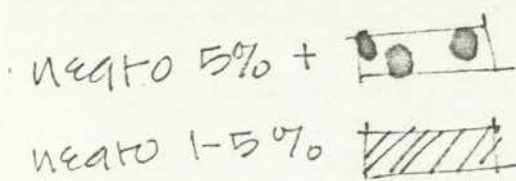 negro 5% +
negro 1-5%